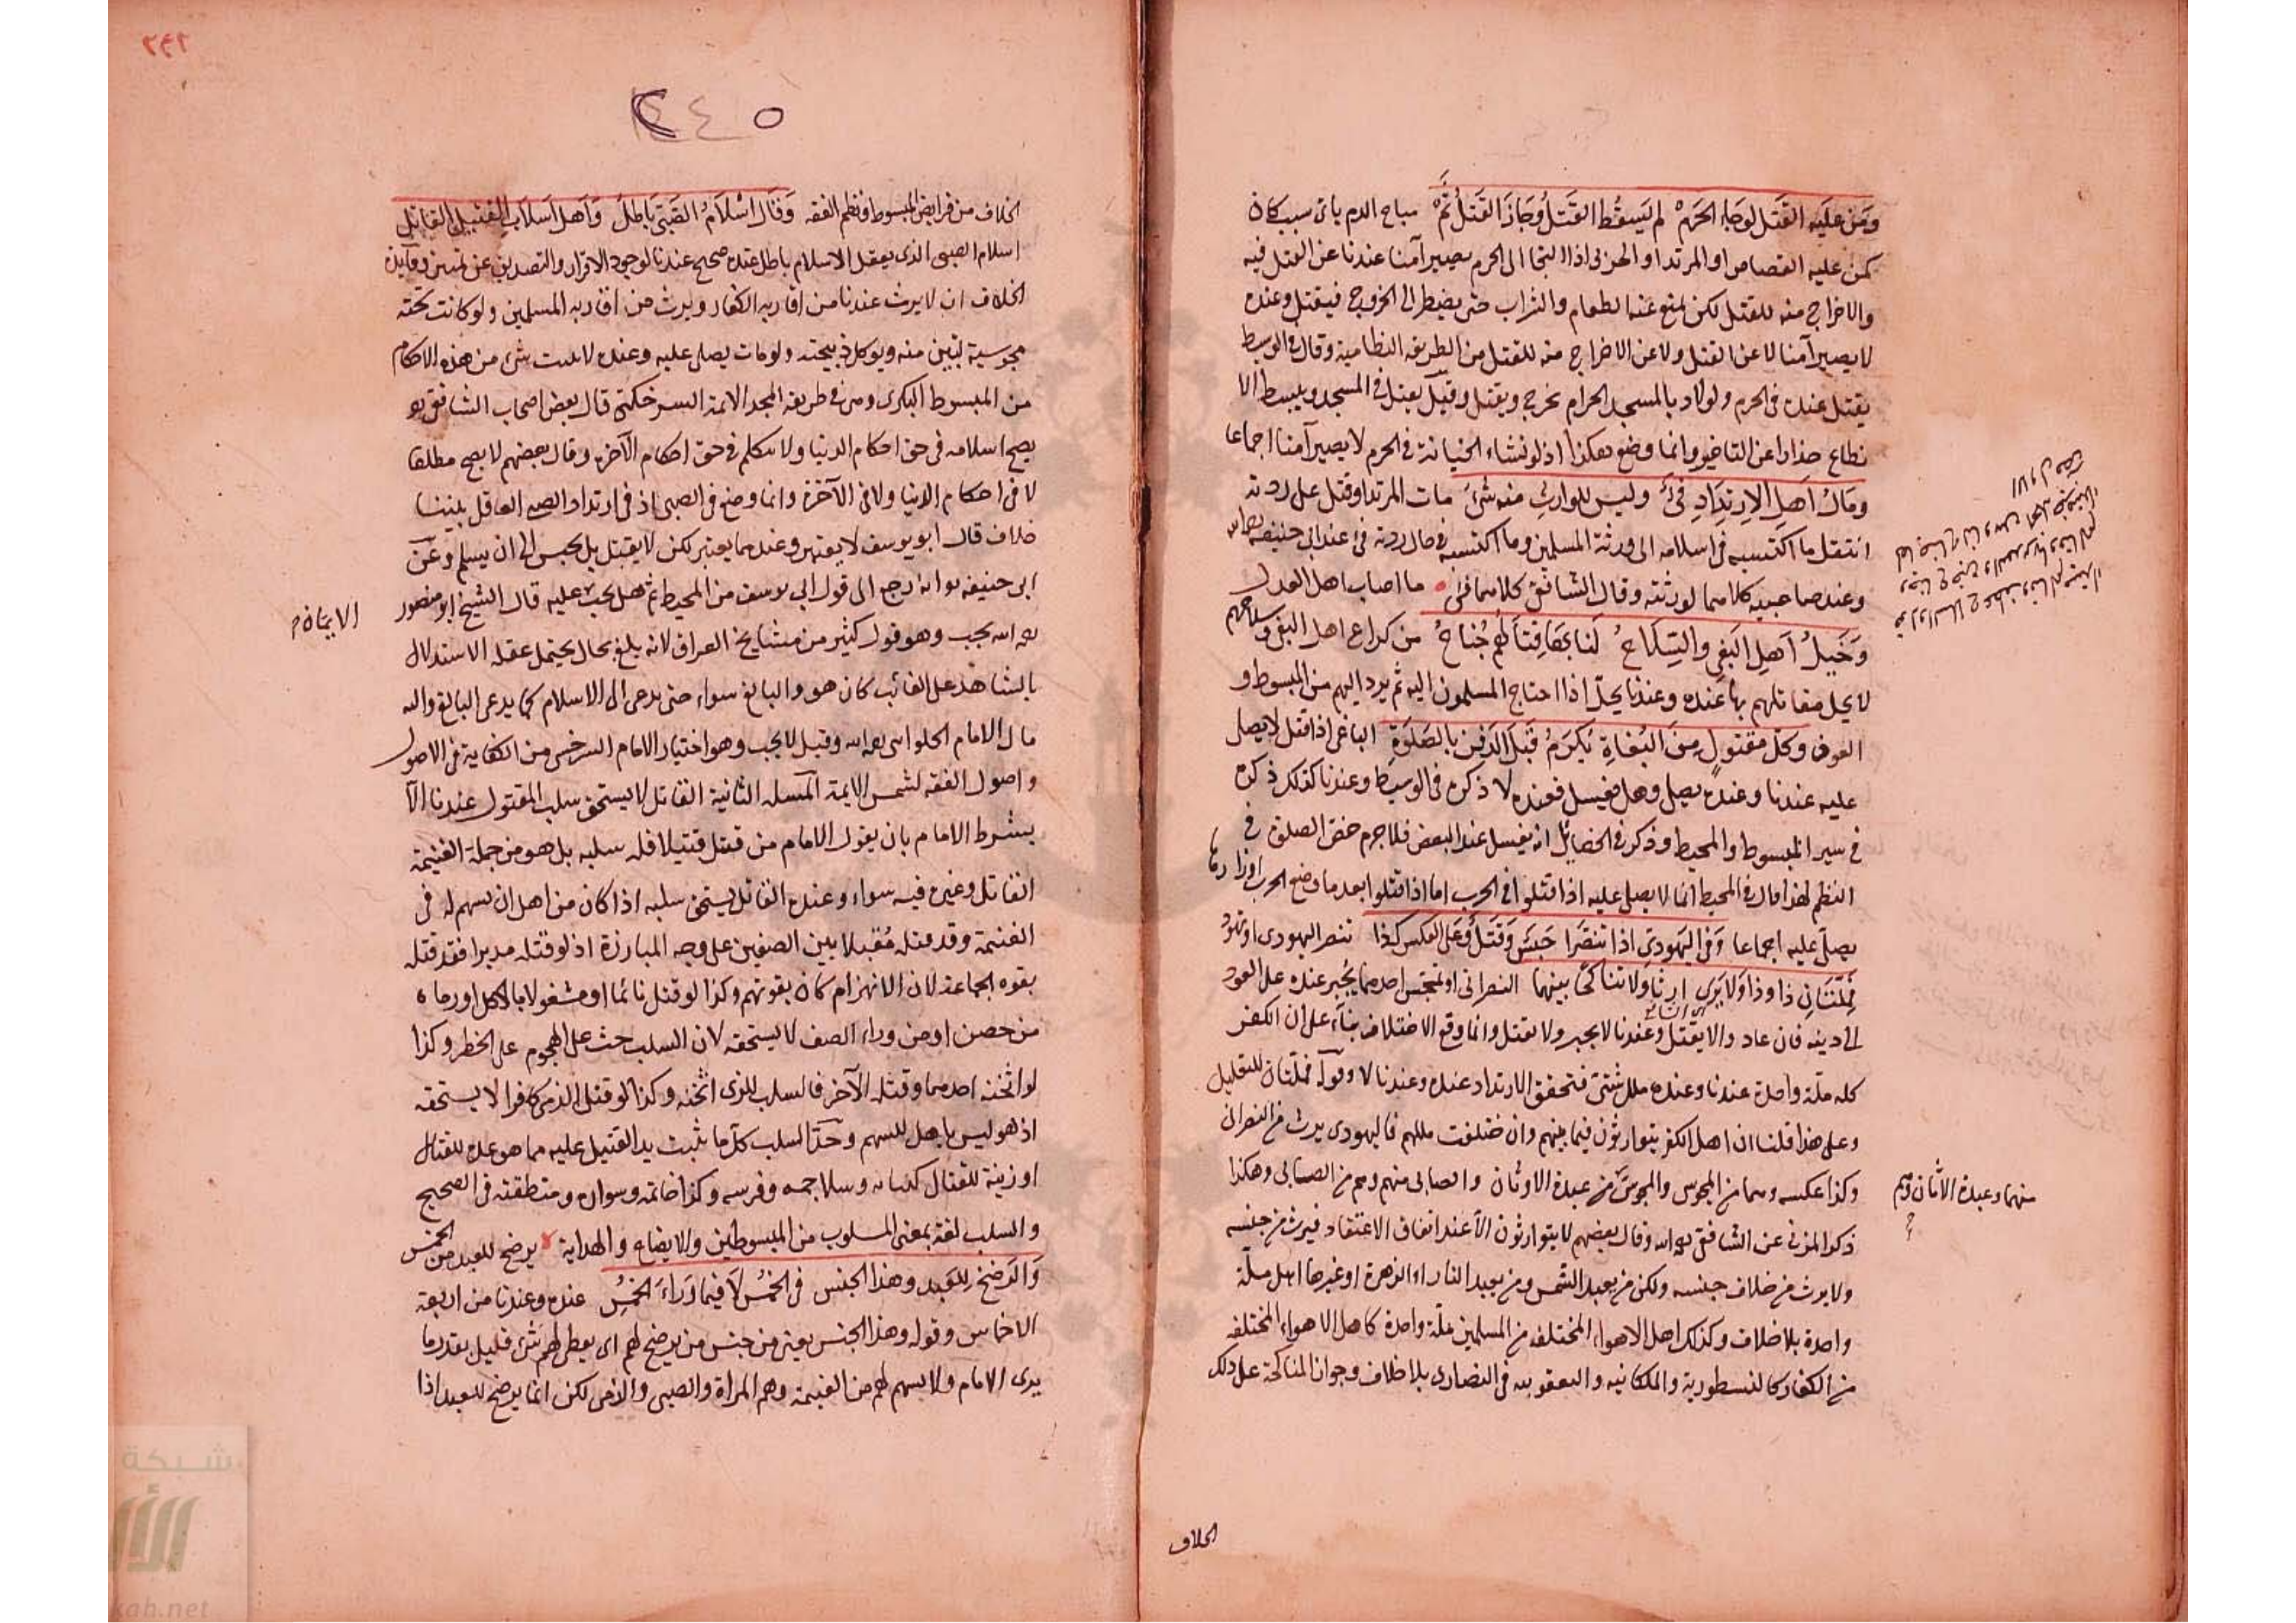 ومن عليه القتل لوجاء الحرم لم يسقط القتل وجاز القتل ثم مباح الدم باى سبب كان
كمن عليه القصاص او المرتد او الحربى اذا التجا الى الحرم يصير آمنا عندنا عن القتل فيه
والاخراج منه للقتل لكن يمنع عنه الطعام والشراب حتى يضطر الى الخروج فيقتل وعنده
لا يصير آمنا لا عن القتل ولا عن الاخراج منه للقتل من الطريقه النظامية وقال فى الوسيط
يقتل عنده فى الحرم ولو لاذ بالمسجد الحرام يخرج ويقتل وقيل يقتل فى المسجد ويبسط الا
نطاع حذارا عن التاخير وانما وضع هكذا اذ لو نشاء الجناية فى الحرم لا يصير آمنا اجماعا
ومال اهل الارتداد فىء وليس للوارث منه شىء مات المرتد او قتل على ردته
انتقل ما اكتسبه فى اسلامه الى ورثته المسلمين وما اكتسبه فى حال ردته فىء عند ابى حنيفه رحمه الله
وعند صاحبيه كلاهما لورثته وقال الشافعى كلاهما فىء ما اصاب اهل العدل
وخيل اهل البغى والسلاح لنا بها قتالهم جناح من كراع اهل البغى وسلاحهم
لا يحل مقاتلهم بها عنده وعندنا يحل اذا احتاج المسلمون اليه ثم يرد اليهم من المبسوط و
العون وكل مقتول من البغاة يكرم قبل الدفن بالصلوة الباغى اذا قتل لا يصلى
عليه عندنا وعنده يصلى وهل يغسل فعنده لا ذكره فى الوسيط وعندنا كذلك ذكره
فى سير المبسوط والمحيط وذكر فى الخصائل انه يغسل عند البعض فلا جرم خص الصلوة فى
النظم لهذا قال فى المحيط انما لا يصلى عليه اذا قتلوا فى الحرب اما اذا قتلوا بعد ما وضع الحرب اوزارها
يصلى عليه اجماعا وفى اليهودى اذا تنصرا حبس وقتل وعلى العكس كذا تنصر اليهودى او تهود
فملتان ذا وذا ولا يرى ارثا ولا تناكحا بينهما النصرانى او تمجس احدهما يجبر عنده على العود
الى دينه فان عاد والا يقتل وعندنا لا يجبر ولا يقتل وانما وقع الاختلاف بناء على ان الكفر
كله ملة واحدة عندنا وعنده ملل شتى فتحقق الارتداد عنده وعندنا لا وقوله فملتان للتعليل
وعلى هذا قلنا ان اهل الكفر يتوارثون فيما بينهم وان اختلفت مللهم فاليهودى يرث من النصرانى
وكذا عكسه وهما من المجوس والمجوس من عبدة الاوثان والصابى منهم وهم من الصابى وهكذا
منهما وعبدة الاثان وهم
ذكر المزنى عن الشافعى رحمه الله وقال بعضهم لا يتوارثون الا عند اتفاق الاعتقاد فيرث من جنسه
ولا يرث من خلاف جنسه ولكن من يعبد الشمس ومن يعبد النار او الزهرة او غيرها اهل ملة
واحدة بلا خلاف وكذلك اهل الاهواء المختلفه من المسلمين ملة واحدة كاهل الاهواء المختلفه
من الكفار كالنسطورية والملكانيه واليعقوبيه فى النصارى بلا خلاف وجواز المناكحة على ذلك
الخلاف
٢٤٢
٢٤٥
الخلاف من فرايض المبسوط ونظم الفقه وقال اسلام الصبى باطل واهل اسلاب القتيل القاتل
اسلام الصبى الذى يعقل الاسلام باطل عنده صحيح عندنا لوجود الاقرار والتصديق عن تمييز وفايدة
الخلاف ان لا يرث عندنا من اقاربه الكفار ويرث من اقاربه المسلمين ولو كانت تحته
مجوسية تبين منه ويوكل ذبيحته ولو مات يصلى عليه وعنده لا يثبت شىء من هذه الاحكام
من المبسوط البكرى ومن فى طريقه المجد الائمة السرخكتى قال بعض اصحاب الشافعى
يصح اسلامه فى حق احكام الدنيا ولا نتكلم فى حق احكام الآخرة وقال بعضهم لا يصح مطلقا
لا فى احكام الدنيا ولا فى الآخرة وانما وضع فى الصبى اذ فى ارتداد الصبى العاقل بيننا
خلاف قال ابو يوسف لا يعتبر وعندهما يعتبر لكن لا يقتل بل يحبس الى ان يسلم وعن
ابى حنيفه انه رجع الى قول ابى يوسف من المحيط ثم هل يجب عليه قال الشيخ ابو منصور
الايمان
رحمه الله يجب وهو قول كثير من مشايخ العراق لانه بلغ بحال يحتمل عقله الاستدلال
بالشاهد على الغائب كان هو والبالغ سواء حتى يدعى الى الاسلام كما يدعى البالغ واليه
مال الامام الحلوانى رحمه الله وقيل لا يجب وهو اختيار الامام السرخسى من الكفاية فى الاصول
واصول الفقه لشمس الايمة المسله الثانية القاتل لا يستحق سلب المقتول عندنا الا
بشرط الامام بان يقول الامام من قتل قتيلا فله سلبه بل هو من جملة الغنيمة
القاتل وغيره فيه سواء وعنده القاتل يستحق سلبه اذا كان من اهل ان يسهم له فى
الغنيمة وقد قتله مقبلا بين الصفين على وجه المبارزة اذ لو قتله مدبرا فقد قتله
بقوة الجماعة لان الانهزام كان بقوتهم وكذا لو قتل نائما او مشغولا بالاكل او رماه
من حصن او من وراء الصف لا يستحقه لان السلب حث على الهجوم على الخطر وكذا
لو اثخنه احدهما وقتله الآخر فالسلب للذى اثخنه وكذا لو قتل الذمى كافرا لا يستحقه
اذ هو ليس باهل للسهم وحد السلب كل ما ثبت يد القتيل عليه مما هو عدة للقتال
او زينة للقتال كثيابه وسلاحه وفرسه وكذا خاتمه وسواره ومنطقته فى الصحيح
والسلب لغة بمعنى المسلوب من المبسوطين والايضاح والهداية يرضخ للعبد من الخمس
والرضخ للعبد وهذا الجنس فى الخمس لا فيما وراء الخمس عنده وعندنا من اربعة
الاخماس وقوله وهذا الجنس يعنى من جنس من يرضخ لهم اى يعطى لهم شىء قليل بقدر ما
يرى الامام ولا يسهم لهم من الغنيمة وهم المراة والصبى والذمى لكن انما يرضخ للعبد اذا
شبكة
kah.net